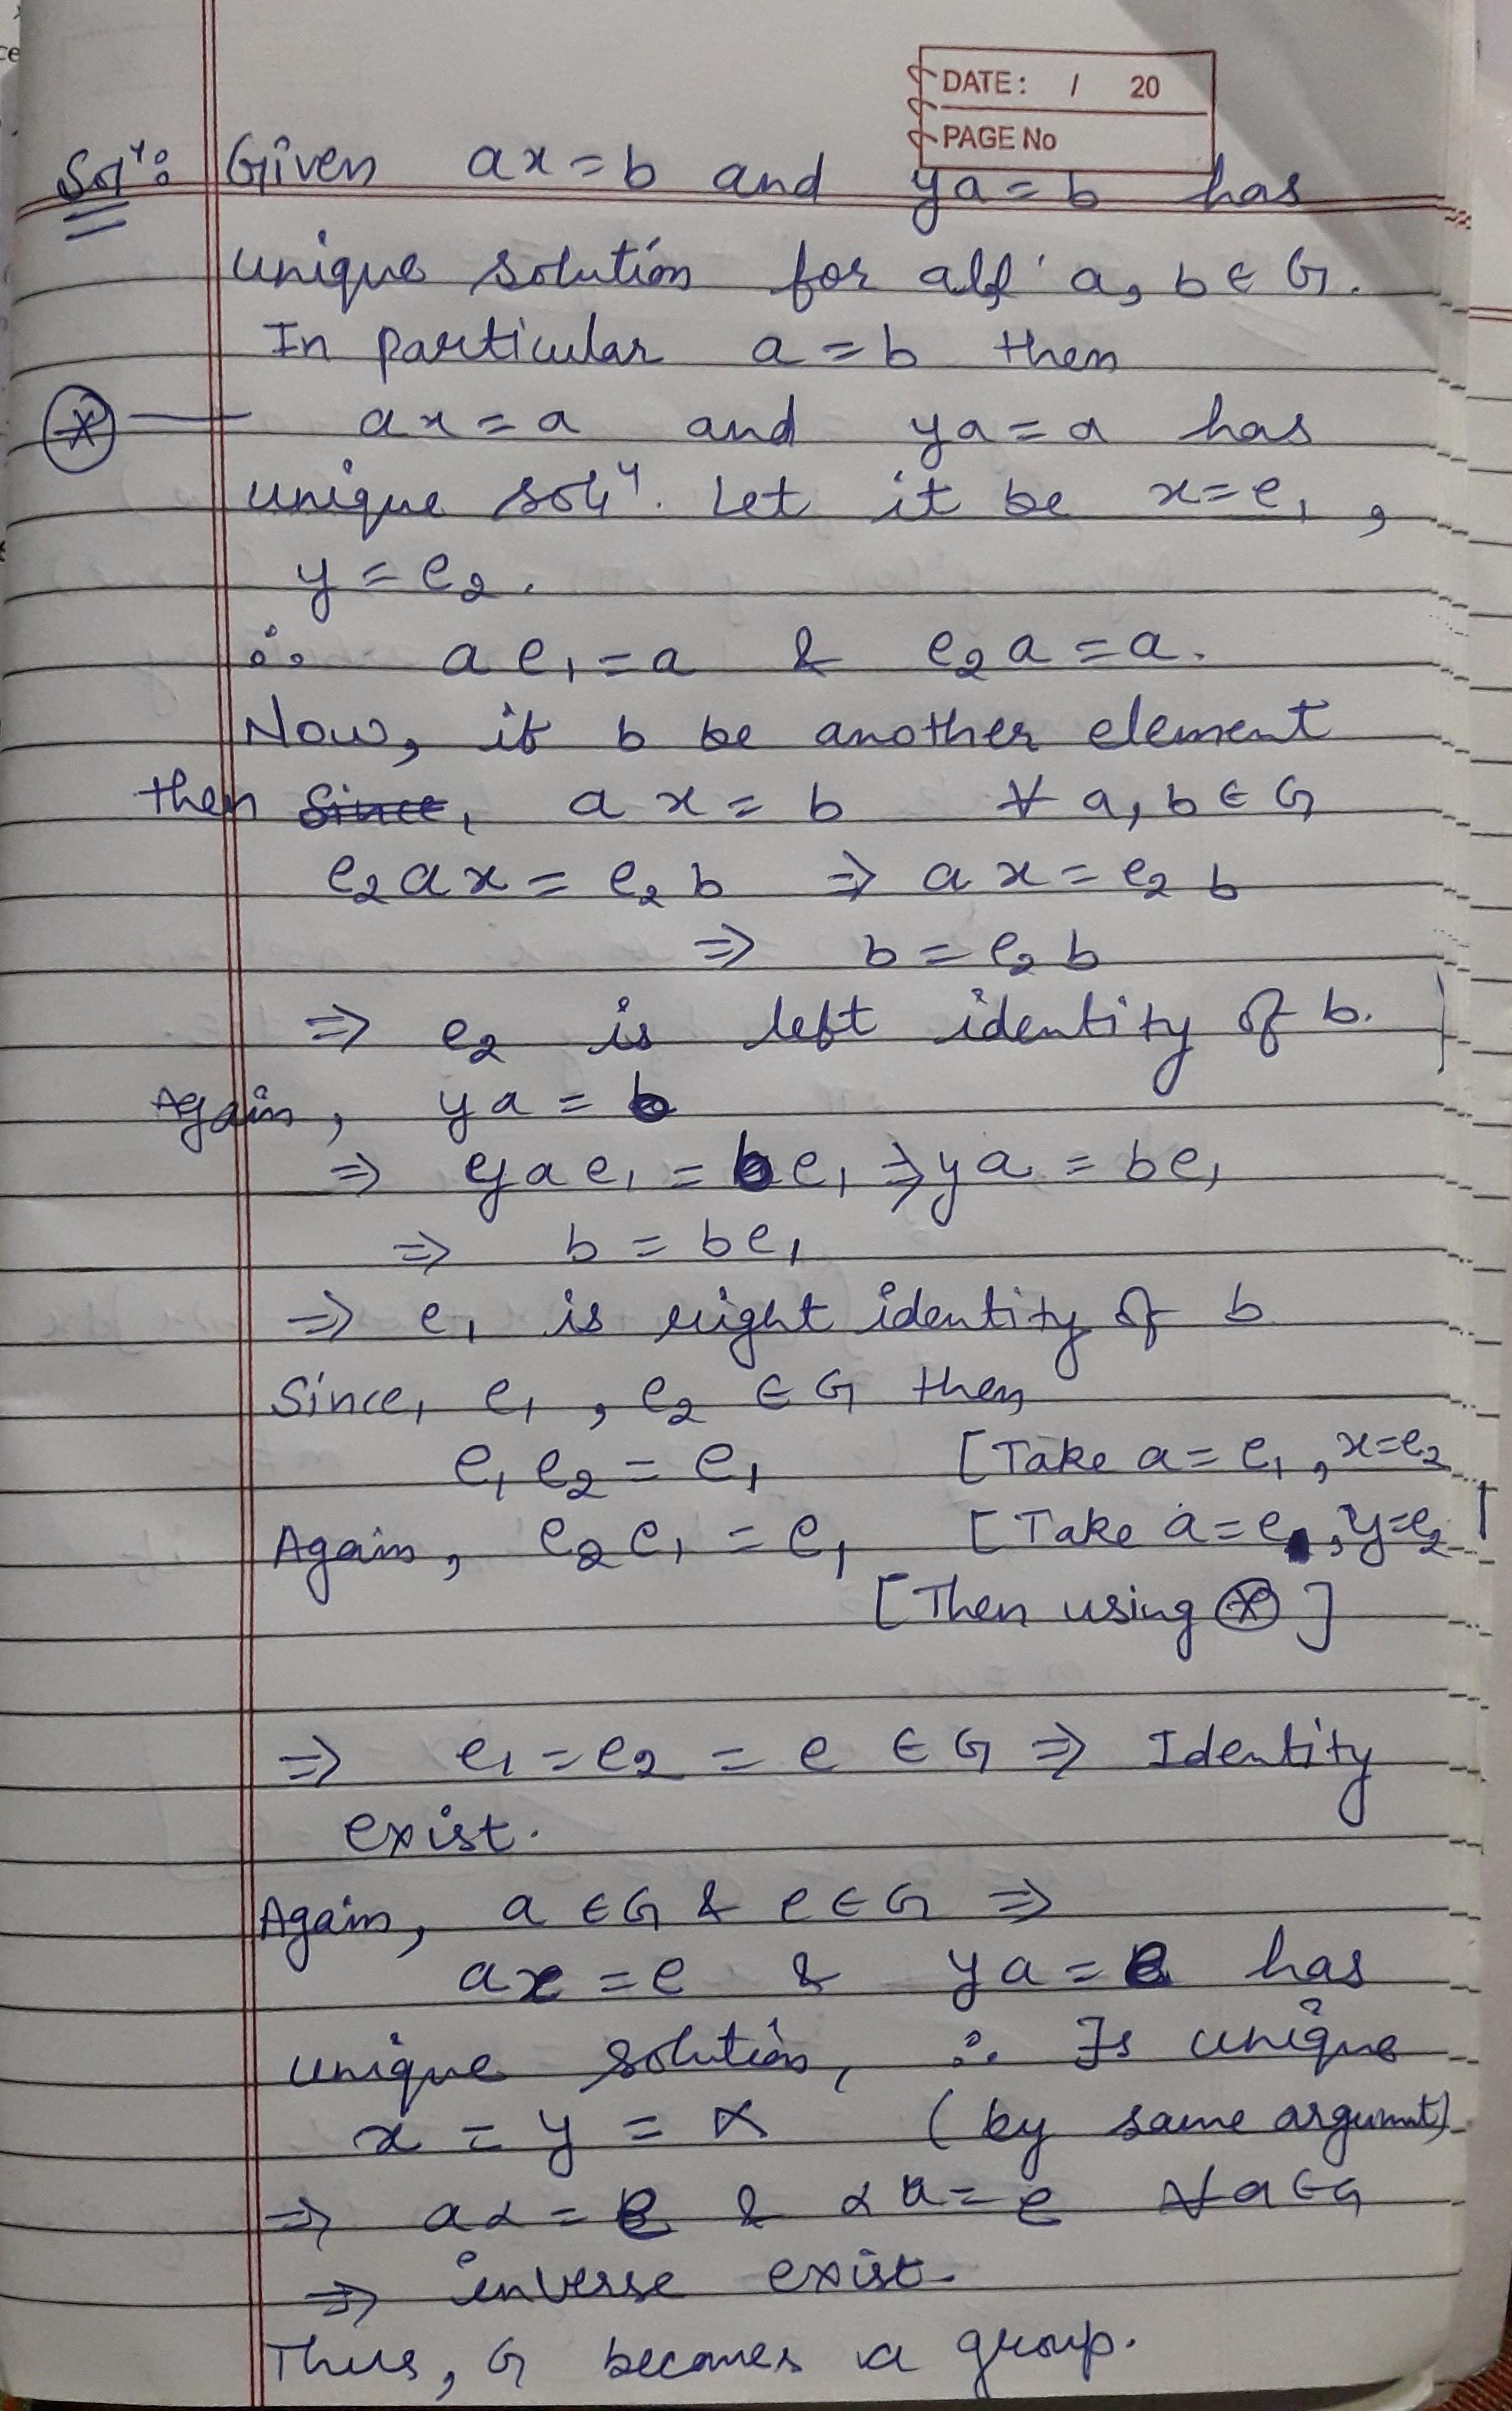 DATE: / 20
PAGE No
Solⁿ: Given ax = b and ya = b has
unique solution for all a, b ∈ G.
In particular a = b then
ⓧ — ax = a and ya = a has
unique solⁿ. Let it be x = e₁,
y = e₂.
∴ ae₁ = a & e₂a = a.
Now, if b be another element
then Since, ax = b ∀ a, b ∈ G
e₂ax = e₂b ⇒ ax = e₂b
⇒ b = e₂b
⇒ e₂ is left identity of b.
Again, ya = b
⇒ yae₁ = be₁ ⇒ ya = be₁
⇒ b = be₁
⇒ e₁ is right identity of b
Since, e₁, e₂ ∈ G then
e₁e₂ = e₁ [Take a = e₁, x = e₂
Again, e₂e₁ = e₁ [Take a = e₁, y = e₂]
[Then using ⓧ]
⇒ e₁ = e₂ = e ∈ G ⇒ Identity
exist.
Again, a ∈ G & e ∈ G ⇒
ax = e & ya = e has
unique solution, ∴ Is unique
x = y = α (by same argumnt)
⇒ aα = e & αa = e ∀ a ∈ G
⇒ inverse exist.
Thus, G becomes a group.